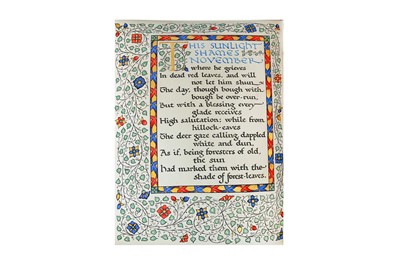 THIS SUNLIGHT
SHAMES
NOVEMBER
where he grieves
In dead red leaves, and will
not let him shun
The day, though bough with
bough be over-run.
But with a blessing every
glade receives
High salutation; while from
hillock-eaves
The deer gaze calling, dappled
white and dun,
As if, being foresters of old,
the sun
Had marked them with the
shade of forest-leaves.